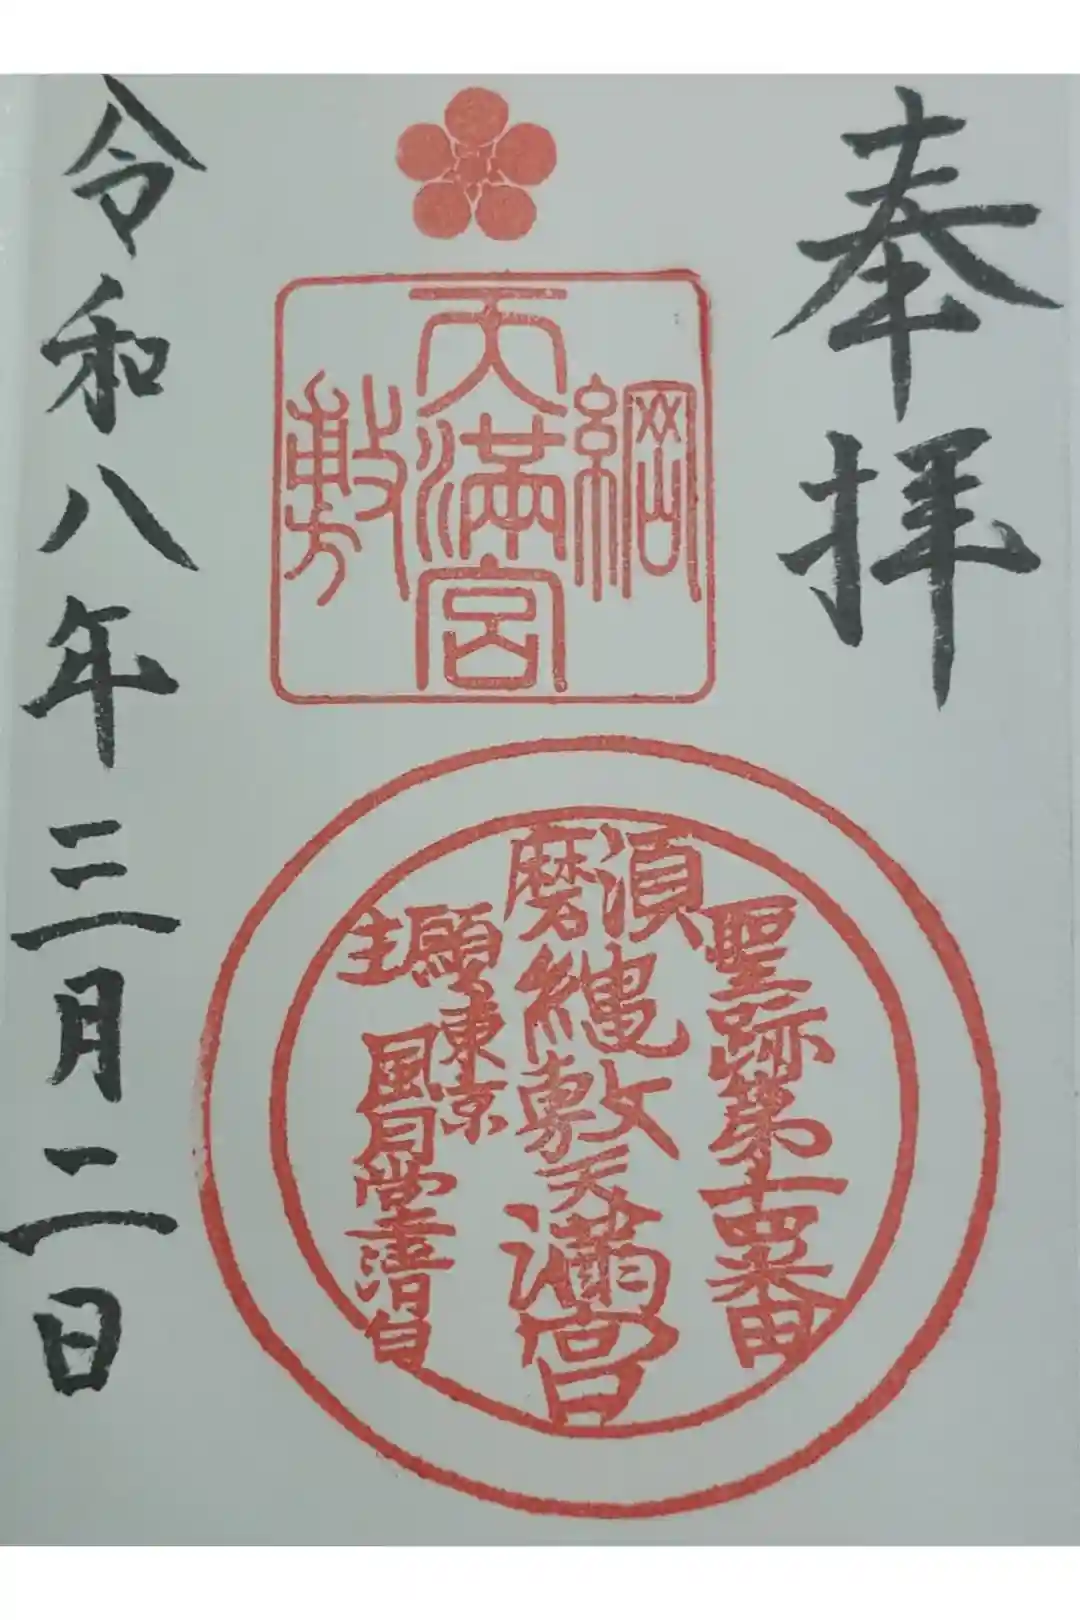 奉拝
綱
天満宮
敷
聖跡第十四番
須磨
縄敷天満宮
願主
東京
風月堂
令和八年三月二日